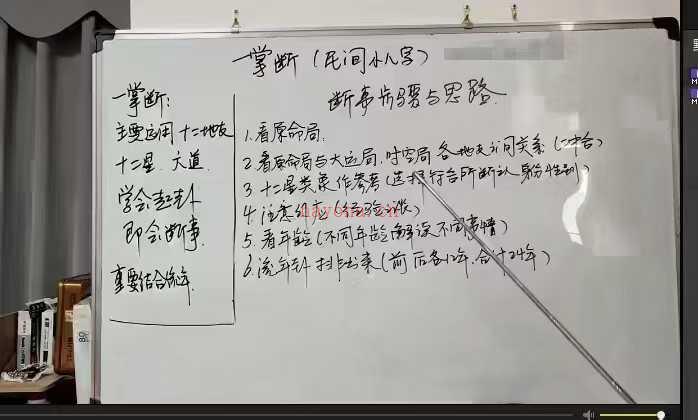 一掌断（民间小八字）
断事步骤与思路.
一掌断：
主要运用十二地支
十二星、六道
学会起卦
即会断事.
重要结合流年.
1.看原命局；
2.看原命局与大运局,时空局 各地支之间关系（二冲合）
3.十二星类象作参考（选择符合所断认身份性别）
4.注意外应（经验谈）
5.看年龄（不同年龄解读不同事情）
6.流年卦排出来（前后各12年,合计24年）
nayona.cn